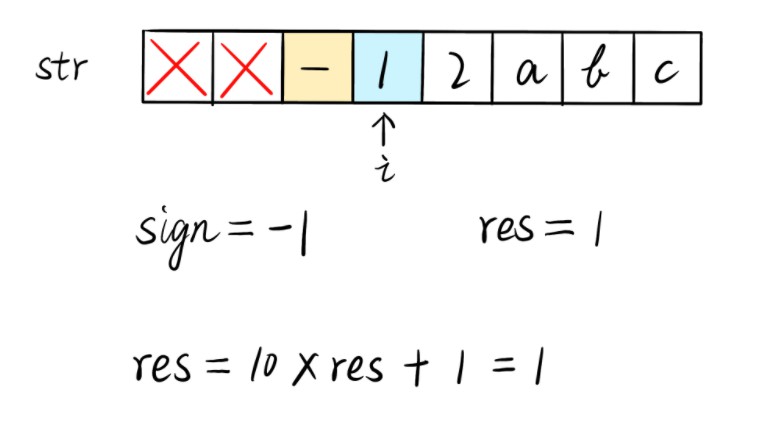 str - 1 2 a b c
↑
i
sign = -1 res = 1
res = 10 × res + 1 = 1